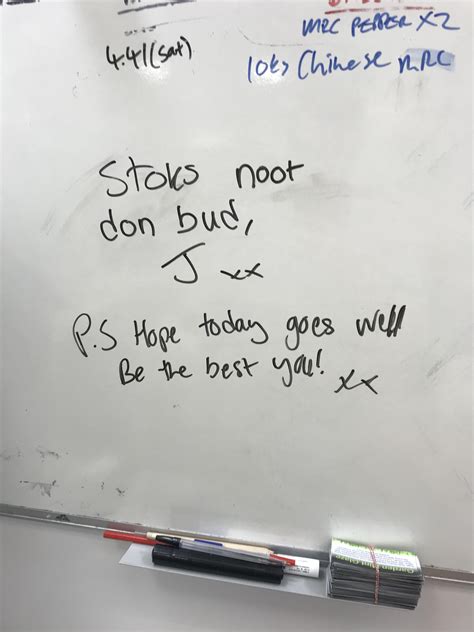 MRC PEPPER X2
4.41 (sat)
10ks Chinese MRC
Stoks noot
don bud,
J xx
P.S Hope today goes well
Be the best you! xx